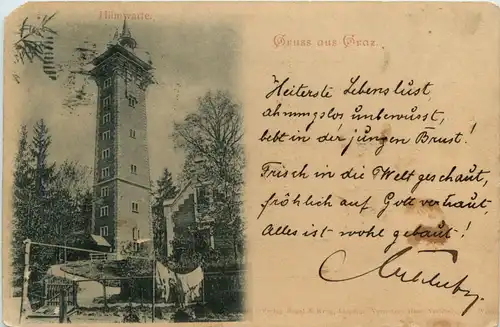 Hilmwarte.
Gruss aus Graz.
Heiterste Lebenslust,
ahnungslos unbewusst,
lebt in der jungen Brust!
Frisch in die Welt geschaut,
fröhlich auf Gott vertraut,
Alles ist wohl gebaut!
Verlag